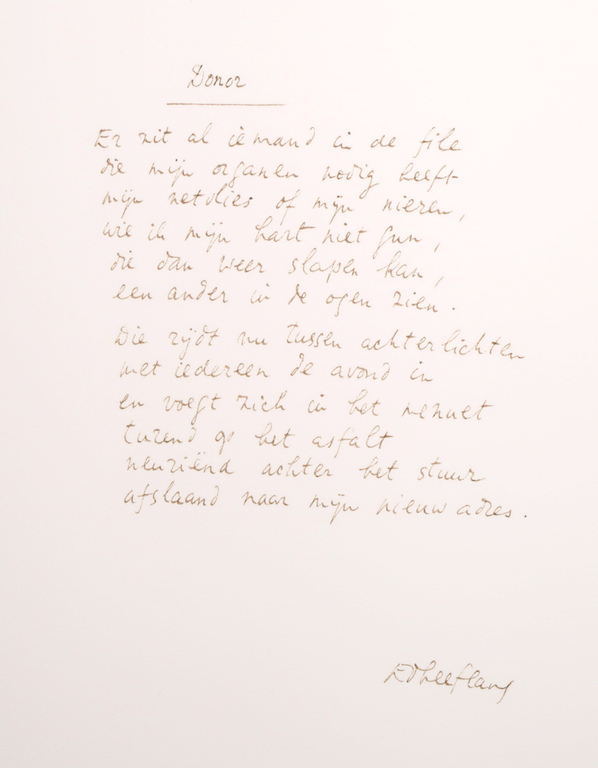 Donor
Er zit al iemand in de file
die mijn organen nodig heeft
mijn netvlies of mijn nieren,
wie ik mijn hart niet gun,
die dan weer slapen kan,
een ander in de ogen zien.
Die rijdt nu tussen achterlichten
met iedereen de avond in
en voegt zich in het menuet
turend op het asfalt
neuriënd achter het stuur
afslaand naar mijn nieuw adres.